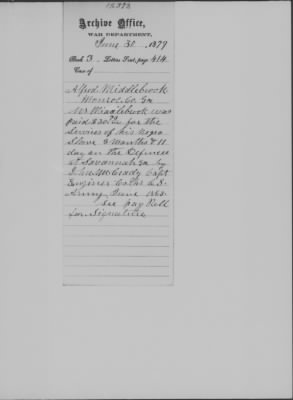 Archive Office,
WAR DEPARTMENT,
June 30, 1879
Book 3 - Letters Sent, page 414
Case of
Alfred Middlebrook
Monroe Co Ga
Mr Middlebrook was
paid for the
Services of his Negro
Slave 2 Months & 11
day on the Defences
at Savannah Ga by
John McCrady Capt
Engineer Corps C. S.
Army, June 1863.
see pay Roll
for Signature